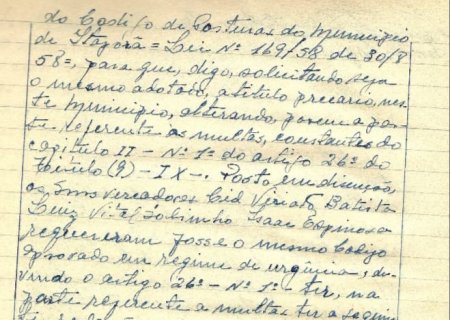 do Codigo de Posturas do Municipio
de Itaporã = Lei Nº 169/58 de 30/8
58=, para que, digo, solicitando seja
o mesmo adotado, a titulo precario, nes-
te Municipio, alterando, porem a par-
te referente as multas, constantes do
capitulo II - Nº 1º do artigo 26º do
titulo (9) - IX -. Posto em discução,
os Snrs vereadores Cid Viriato Batista
Luiz Vital Sobrinho Isaac Espinosa
requereram fosse o mesmo Codigo
aprovado em regime de urgência, de-
vendo o artigo 26º - Nº 1º - ter, na
parte referente a multas ter a seguin